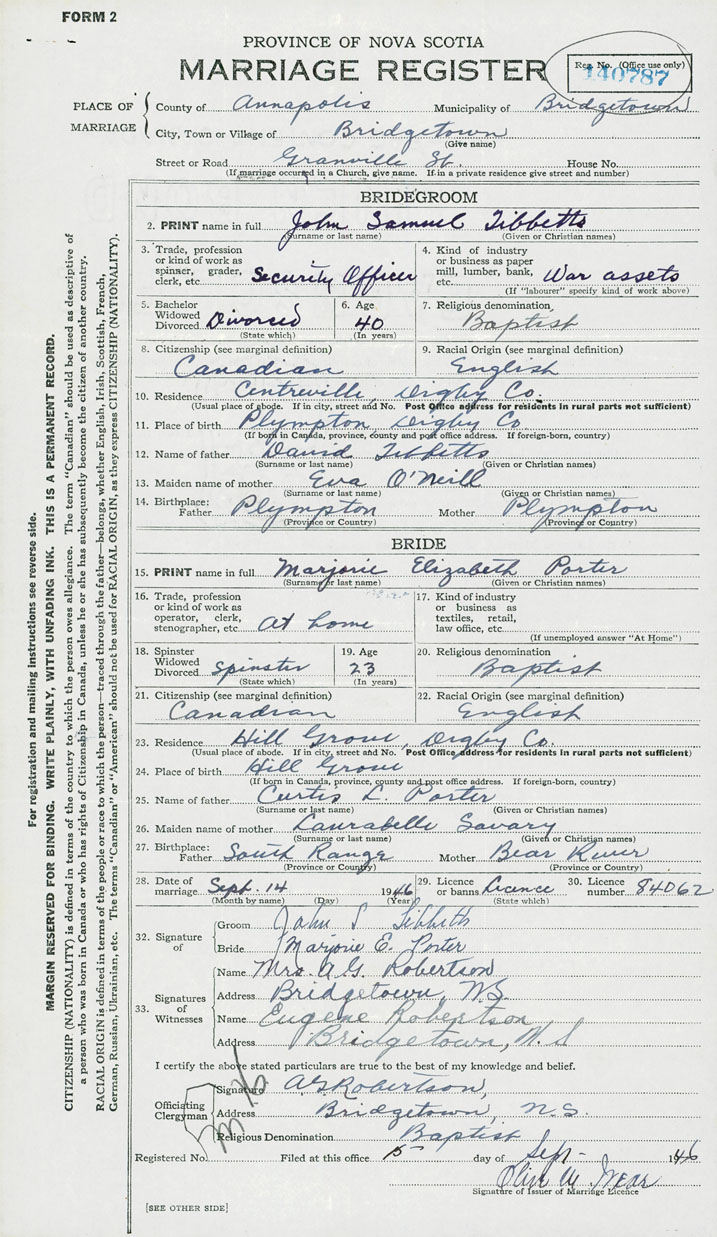 FORM 2
PROVINCE OF NOVA SCOTIA
MARRIAGE REGISTER
Reg. No. (Office use only)
140787
PLACE OF MARRIAGE
County of Annapolis Municipality of Bridgetown
City, Town or Village of Bridgetown
(Give name)
Street or Road Granville St. House No.
(If marriage occurred in a Church, give name. If in a private residence give street and number)
BRIDEGROOM
2. PRINT name in full John Samuel Tibbetts
(Surname or last name) (Given or Christian names)
3. Trade, profession or kind of work as spinner, grader, clerk, etc. Security Officer
4. Kind of industry or business as paper mill, lumber, bank, etc. War assets
(If "labourer" specify kind of work above)
5. Bachelor Widowed Divorced Divorced
(State which)
6. Age 40
(In years)
7. Religious denomination
Baptist
8. Citizenship (see marginal definition)
Canadian
9. Racial Origin (see marginal definition)
English
10. Residence Centreville, Digby Co.
(Usual place of abode. If in city, street and No. Post Office address for residents in rural parts not sufficient)
11. Place of birth Plympton Digby Co
(If born in Canada, province, county and post office address. If foreign-born, country)
12. Name of father David Tibbetts
(Surname or last name) (Given or Christian names)
13. Maiden name of mother Eva O'Neill
(Surname or last name) (Given or Christian names)
14. Birthplace: Father Plympton Mother Plympton
(Province or Country) (Province or Country)
BRIDE
15. PRINT name in full Marjorie Elizabeth Porter
(Surname or last name) (Given or Christian names)
16. Trade, profession or kind of work as operator, clerk, stenographer, etc. At home
17. Kind of industry or business as textiles, retail, law office, etc.
(If unemployed answer "At Home")
18. Spinster Widowed Divorced Spinster
(State which)
19. Age 23
(In years)
20. Religious denomination
Baptist
21. Citizenship (see marginal definition)
Canadian
22. Racial Origin (see marginal definition)
English
23. Residence Hill Grove, Digby Co.
(Usual place of abode. If in city, street and No. Post Office address for residents in rural parts not sufficient)
24. Place of birth Hill Grove
(If born in Canada, province, county and post office address. If foreign-born, country)
25. Name of father Curtis L. Porter
(Surname or last name) (Given or Christian names)
26. Maiden name of mother Laurabelle Savary
(Surname or last name) (Given or Christian names)
27. Birthplace: Father South Range Mother Bear River
(Province or Country) (Province or Country)
28. Date of marriage Sept. 14 1946
(Month by name) (Day) (Year)
29. Licence or banns Licence
(State which)
30. Licence number 84062
32. Signature of
Groom John S Tibbetts
Bride Marjorie E. Porter
33. Signatures of Witnesses
Name Mrs. A G. Robertson
Address Bridgetown, N.S.
Name Eugene Robertson
Address Bridgetown, N.S
I certify the above stated particulars are true to the best of my knowledge and belief.
Officiating Clergyman
Signature A G Robertson,
Address Bridgetown, N.S.
Religious Denomination Baptist
Registered No. Filed at this office 15 day of Sep- 1946
Signature of Issuer of Marriage Licence
[SEE OTHER SIDE]
For registration and mailing instructions see reverse side.
MARGIN RESERVED FOR BINDING. WRITE PLAINLY, WITH UNFADING INK. THIS IS A PERMANENT RECORD.
CITIZENSHIP (NATIONALITY) is defined in terms of the country to which the person owes allegiance. The term "Canadian" should be used as descriptive of
a person who was born in Canada or who has rights of Citizenship in Canada, unless he or she has subsequently become the citizen of another country.
RACIAL ORIGIN is defined in terms of the people or race to which the person—traced through the father—belongs, whether English, Irish, Scottish, French,
German, Russian, Ukrainian, etc. The terms "Canadian" or "American" should not be used for RACIAL ORIGIN, as they express CITIZENSHIP (NATIONALITY).